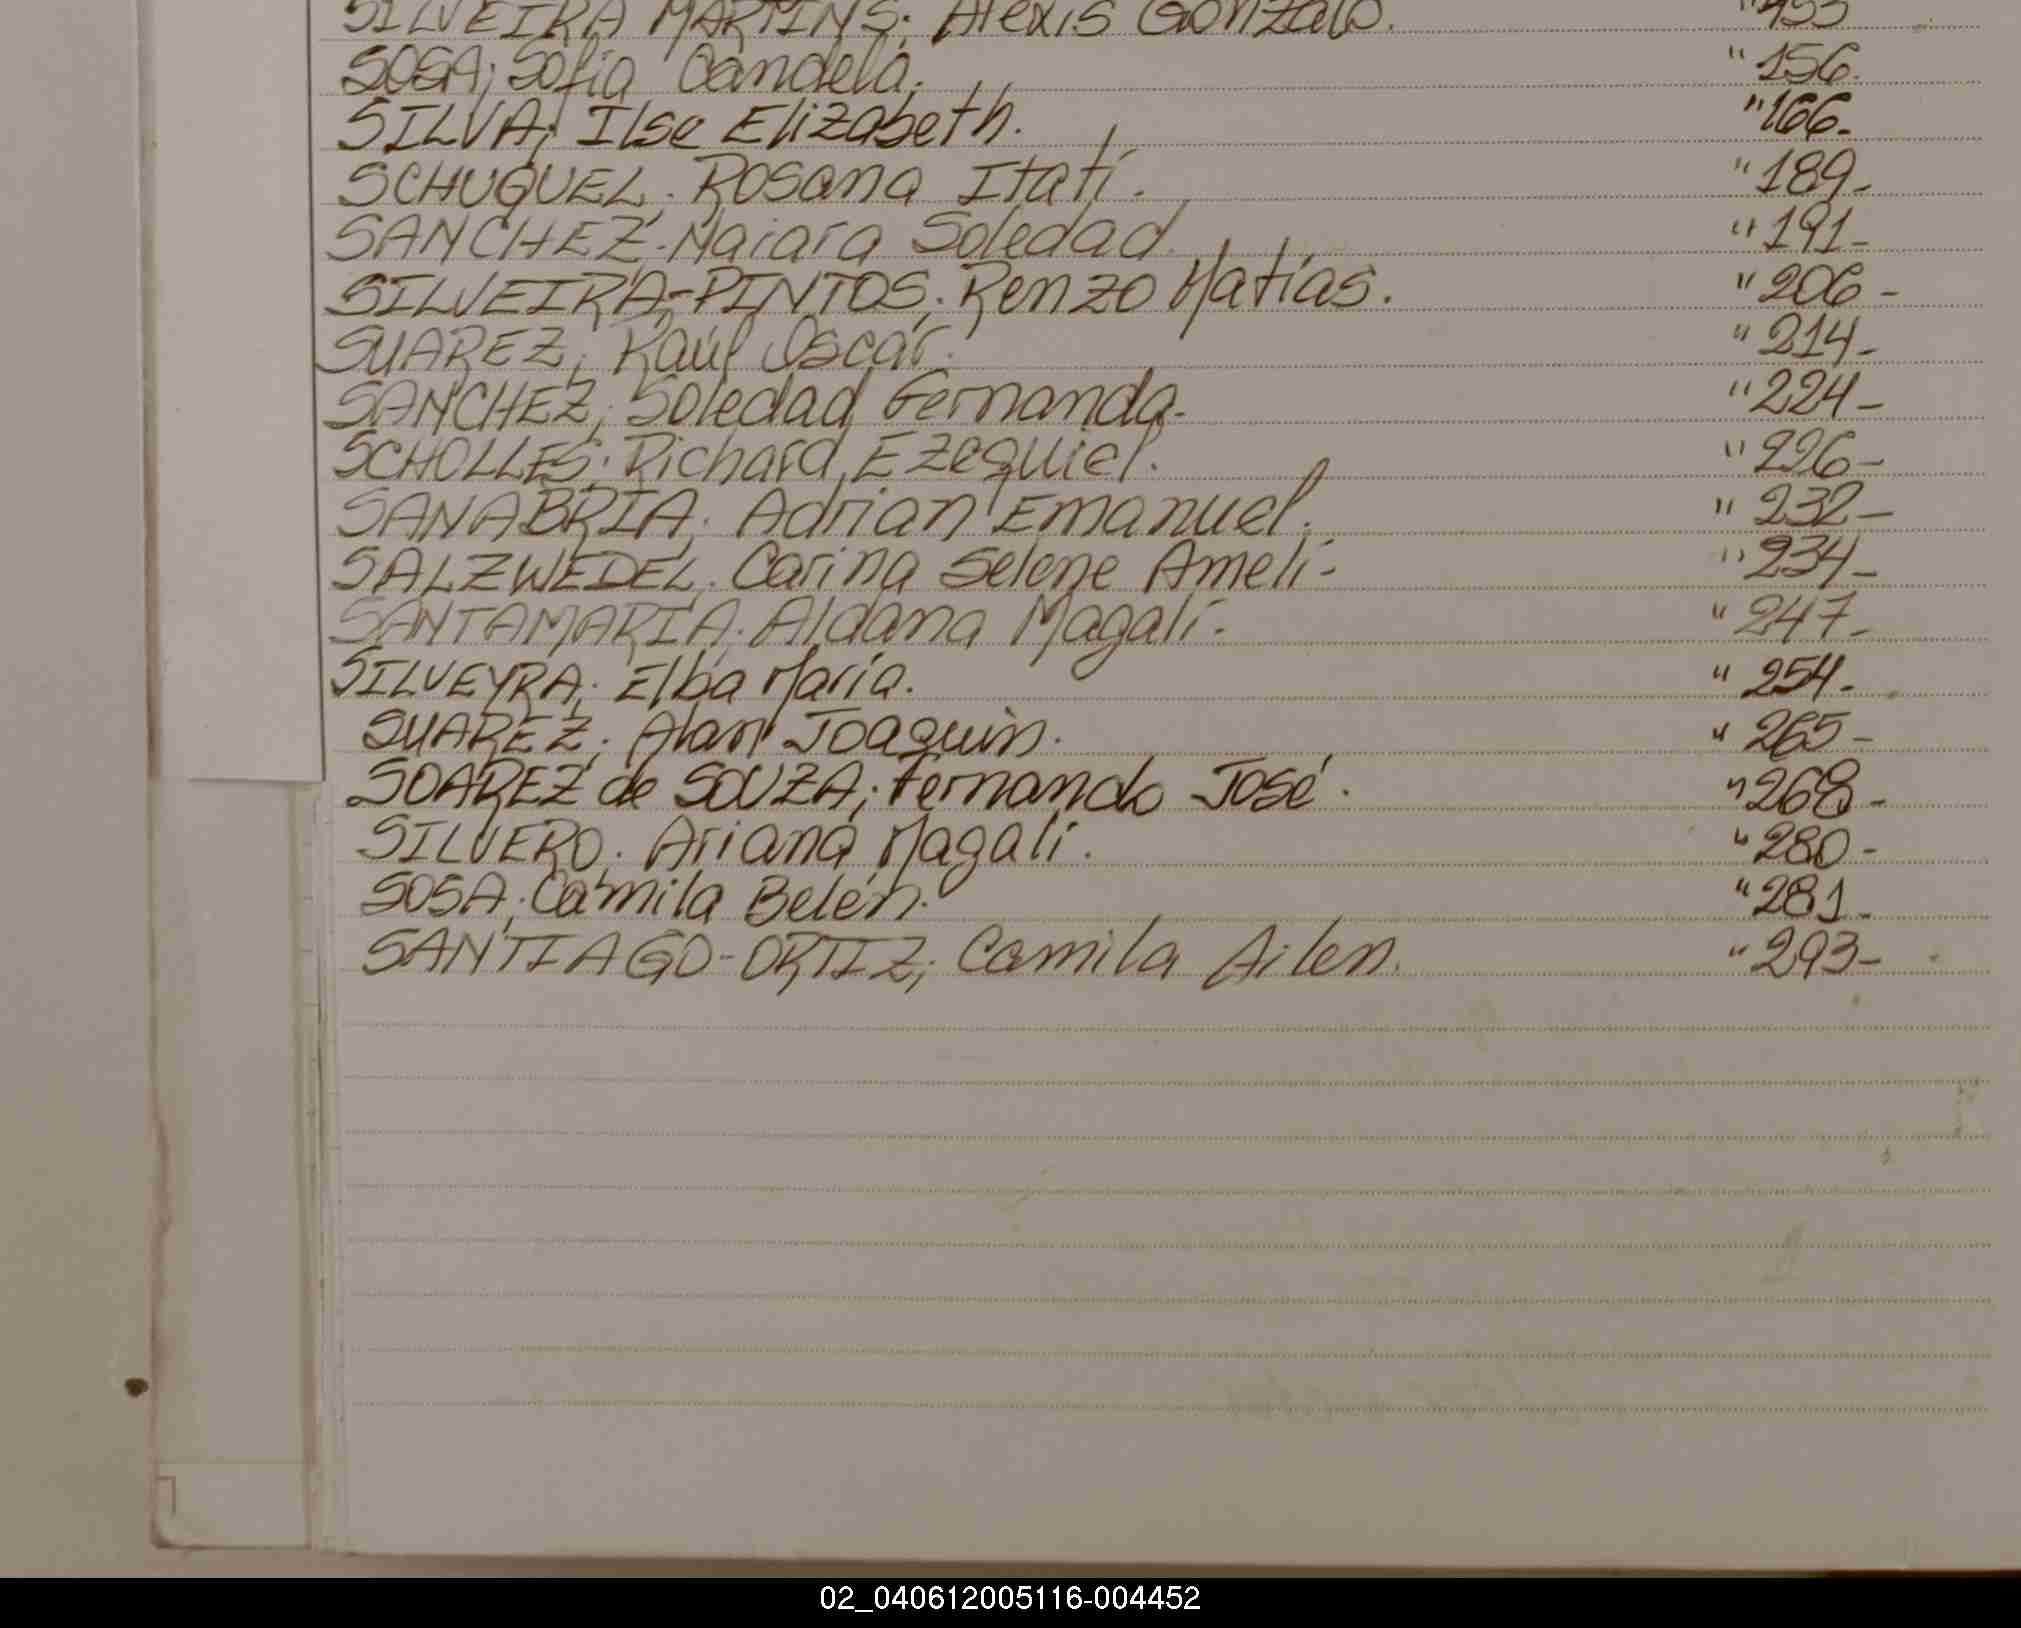 SILVEIRA MARTINS; Alexis Gonzalo. "153
SOSA; Sofia Candela. "156.
SILVA; Ilse Elizabeth. "166.
SCHUQUEL. Rosana Itatí. "189-
SANCHEZ. Naiara Soledad. "191-
SILVEIRA-PINTOS; Renzo Matías. "206-
SUAREZ; Raúl Oscar. "214-
SANCHEZ; Soledad Fernanda. "224-
SCHOLLES; Richard Ezequiel. "226-
SANABRIA; Adrian Emanuel. "232-
SALZWEDEL. Carina Selene Ameli- "234-
SANTAMARIA. Aldana Magalí. "247-
SILVEYRA; Elba María. "254-
SUAREZ; Alan Joaquin. "265-
SOAREZ de SOUZA; Fernando José. "268-
SILVERO. Ariana Magalí. "280-
SOSA; Camila Belén. "281-
SANTIAGO-ORTIZ; Camila Ailen. "293-
02_040612005116-004452